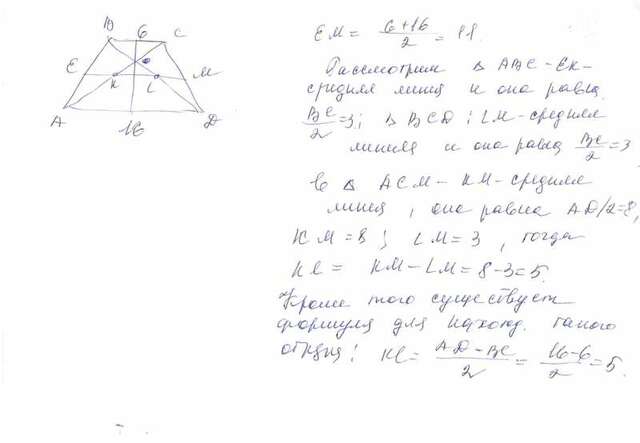 B 6 C
E K L M
A 16 D
EM = 6+16/2 = 11
Рассмотрим Δ ABC - EK -
средняя линия и она равна
BC/2 = 3; Δ BCD; LM - средняя
линия и она равна BC/2 = 3
в Δ ACM - KM - средняя
линия, она равна AD/2=8,
KM = 8; LM = 3, тогда
KL = KM - LM = 8-3=5.
Кроме того существует
формула для нахожд. такого
отрезка: KL = AD - BC/2 = 16-6/2 = 5.